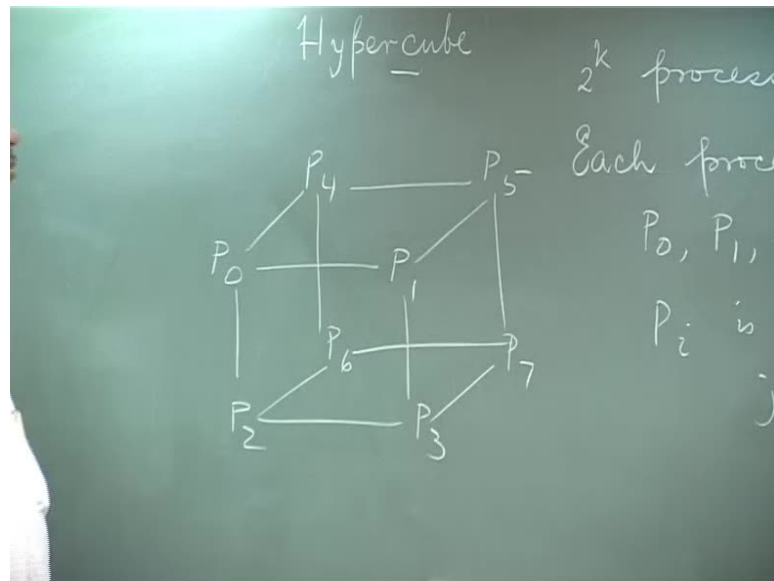 Hypercube
2^k process
Each proce
P0, P1,
Pi is
j
P4 P5
P0 P1
P6 P7
P2 P3